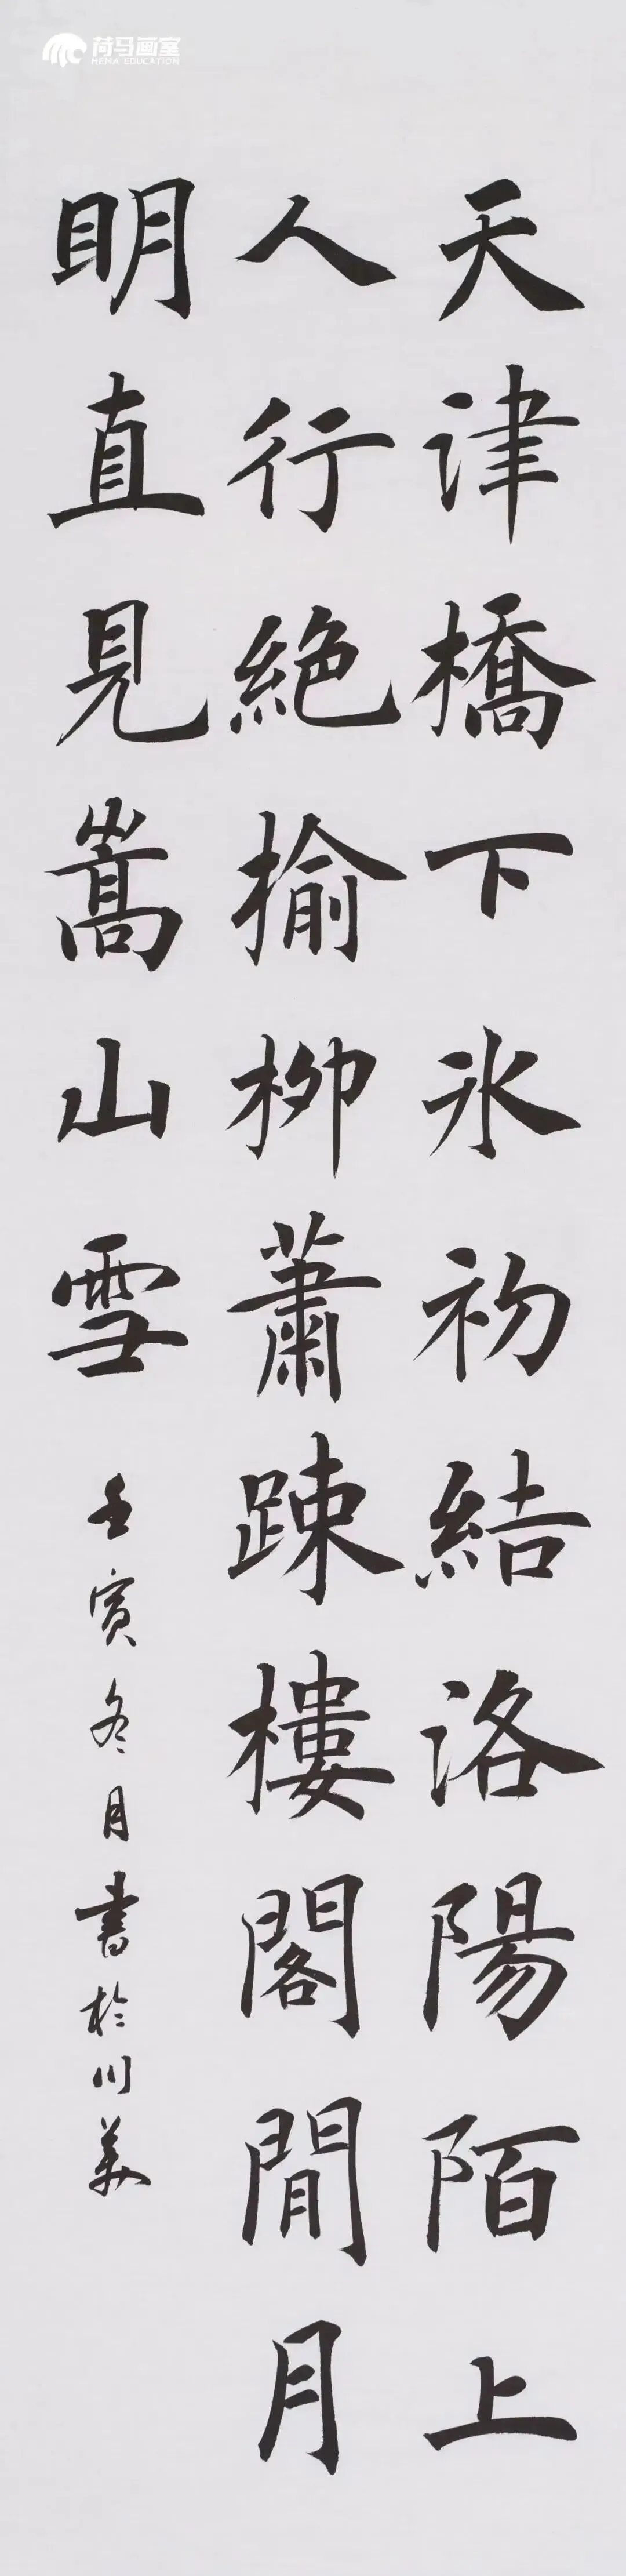 荷马画室
HEMA EDUCATION
天津橋下氷初結洛陽陌上
人行絶榆柳蕭踈樓閣閒月
明直見嵩山雪
壬寅冬月書於川美